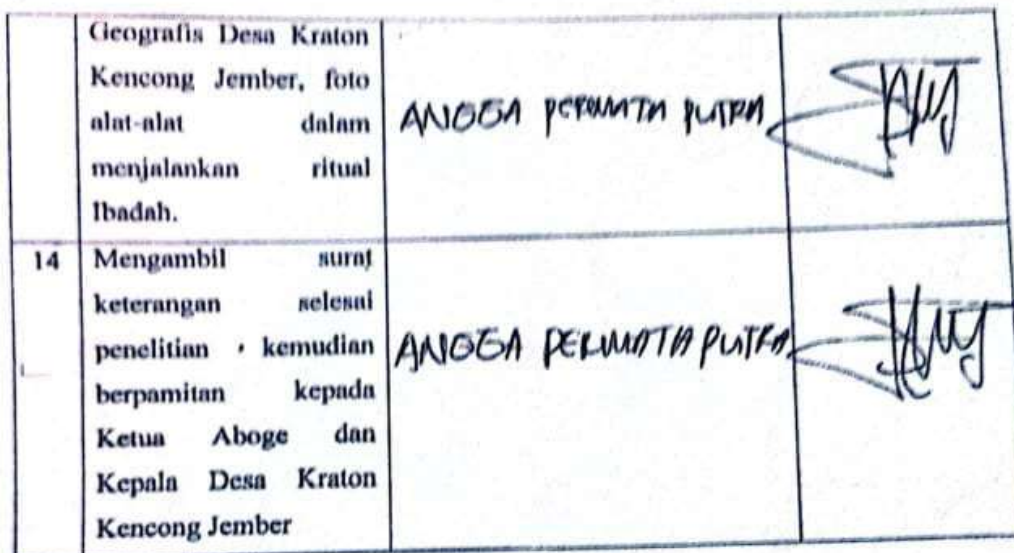 Geografis Desa Kraton
Kencong Jember, foto
alat-alat dalam
menjalankan ritual
Ibadah.
ANGGA PERMATA PUTRA
14
Mengambil surat
keterangan selesai
penelitian kemudian
berpamitan kepada
Ketua Aboge dan
Kepala Desa Kraton
Kencong Jember
ANGGA PERMATA PUTRA